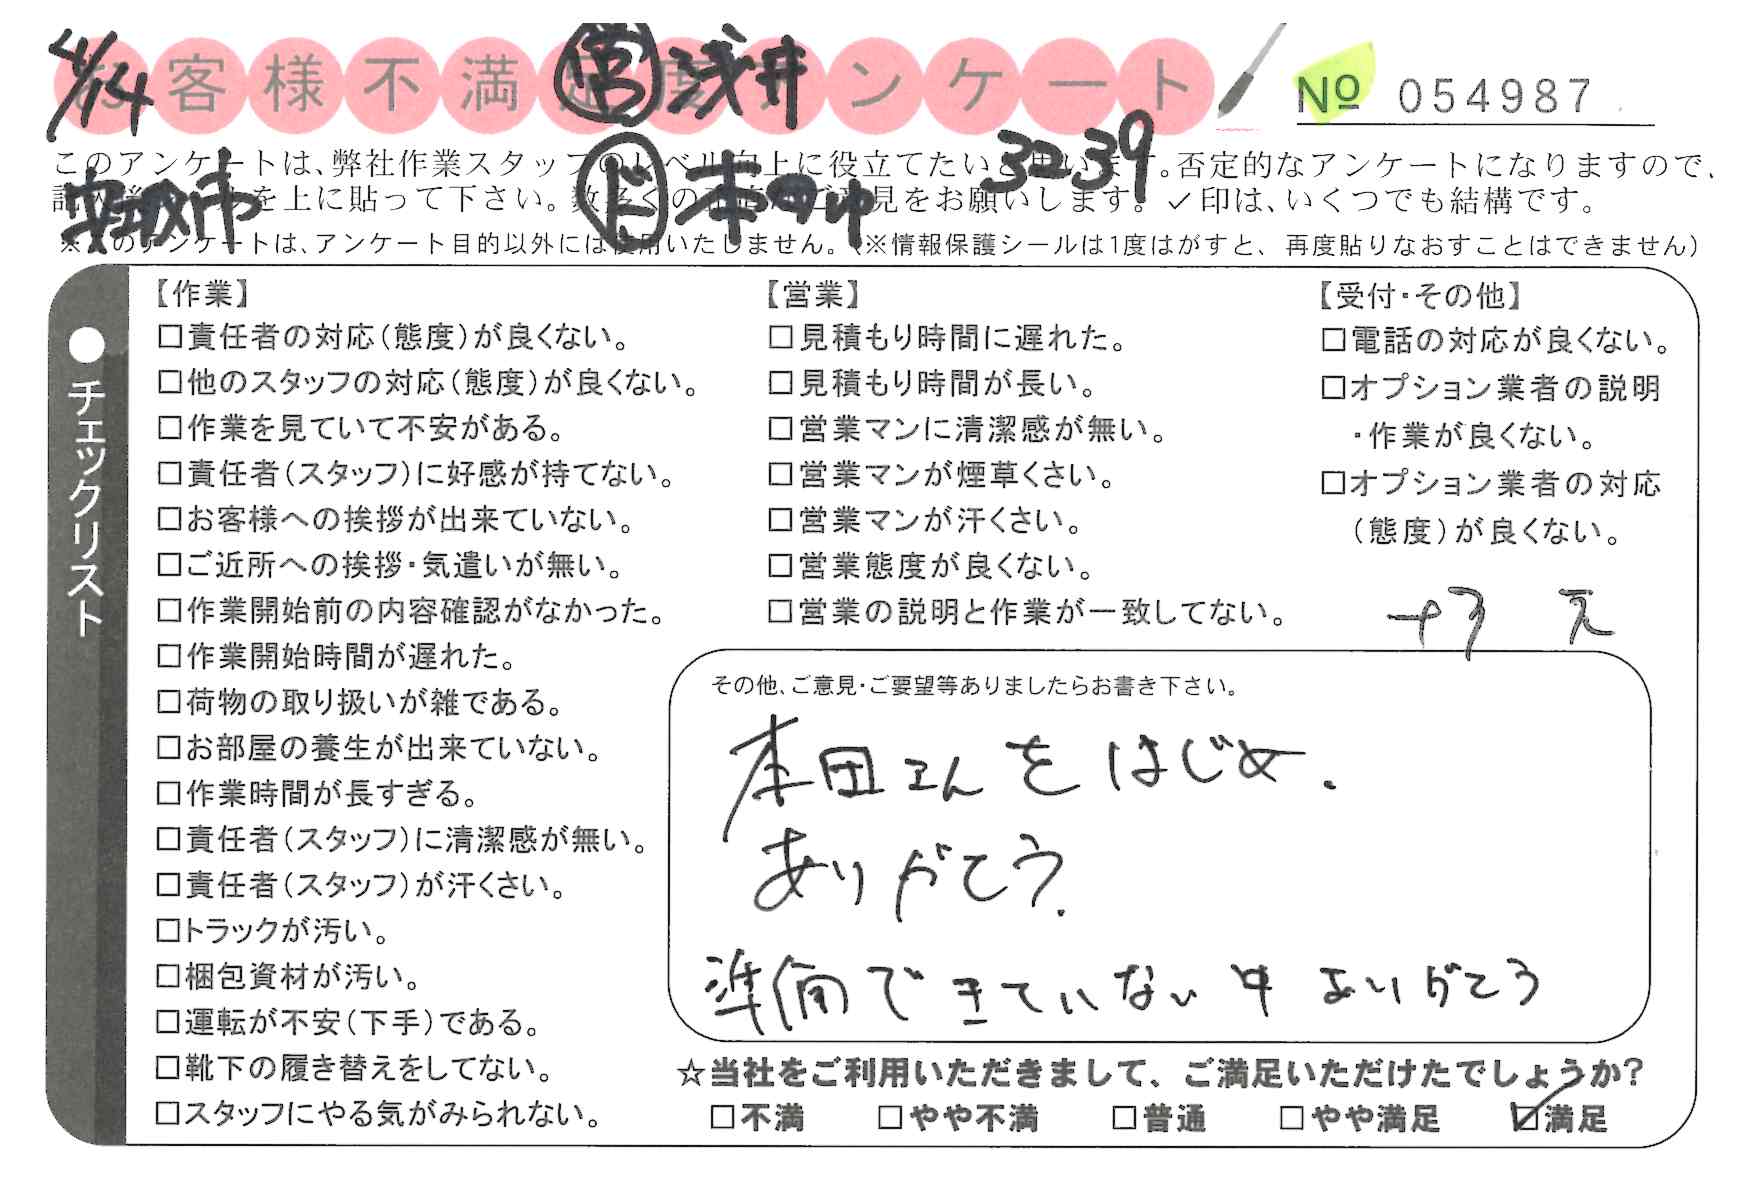 4/14
お客様不満足度アンケート
営 浅井
No 054987
ド 本田 3239
このアンケートは、弊社作業スタッフのレベル向上に役立てたいと思います。否定的なアンケートになりますので、
を上に貼って下さい。数多くの ご意見をお願いします。✓印は、いくつでも結構です。
※このアンケートは、アンケート目的以外には使用いたしません。（※情報保護シールは1度はがすと、再度貼りなおすことはできません）
●チェックリスト
【作業】
□責任者の対応（態度）が良くない。
□他のスタッフの対応（態度）が良くない。
□作業を見ていて不安がある。
□責任者（スタッフ）に好感が持てない。
□お客様への挨拶が出来ていない。
□ご近所への挨拶・気遣いが無い。
□作業開始前の内容確認がなかった。
□作業開始時間が遅れた。
□荷物の取り扱いが雑である。
□お部屋の養生が出来ていない。
□作業時間が長すぎる。
□責任者（スタッフ）に清潔感が無い。
□責任者（スタッフ）が汗くさい。
□トラックが汚い。
□梱包資材が汚い。
□運転が不安（下手）である。
□靴下の履き替えをしてない。
□スタッフにやる気がみられない。
【営業】
□見積もり時間に遅れた。
□見積もり時間が長い。
□営業マンに清潔感が無い。
□営業マンが煙草くさい。
□営業マンが汗くさい。
□営業態度が良くない。
□営業の説明と作業が一致してない。
【受付・その他】
□電話の対応が良くない。
□オプション業者の説明
・作業が良くない。
□オプション業者の対応
（態度）が良くない。
その他、ご意見・ご要望等ありましたらお書き下さい。
本田さんをはじめ、
ありがとう。
準備できていない中ありがとう
☆当社をご利用いただきまして、ご満足いただけたでしょうか？
□不満 □やや不満 □普通 □やや満足 ☑満足